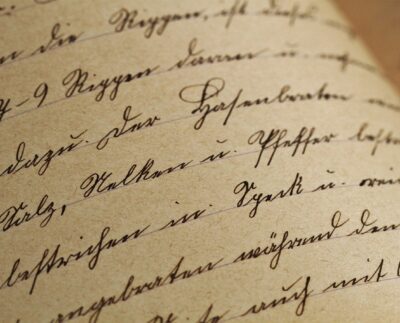 die Rippen, ist
7-9 Rippen daran u.
dazu. Der Hasenbraten
Salz, Nelken u. Pfeffer
bestrichen in Speck u.
angebraten während den
auch mit